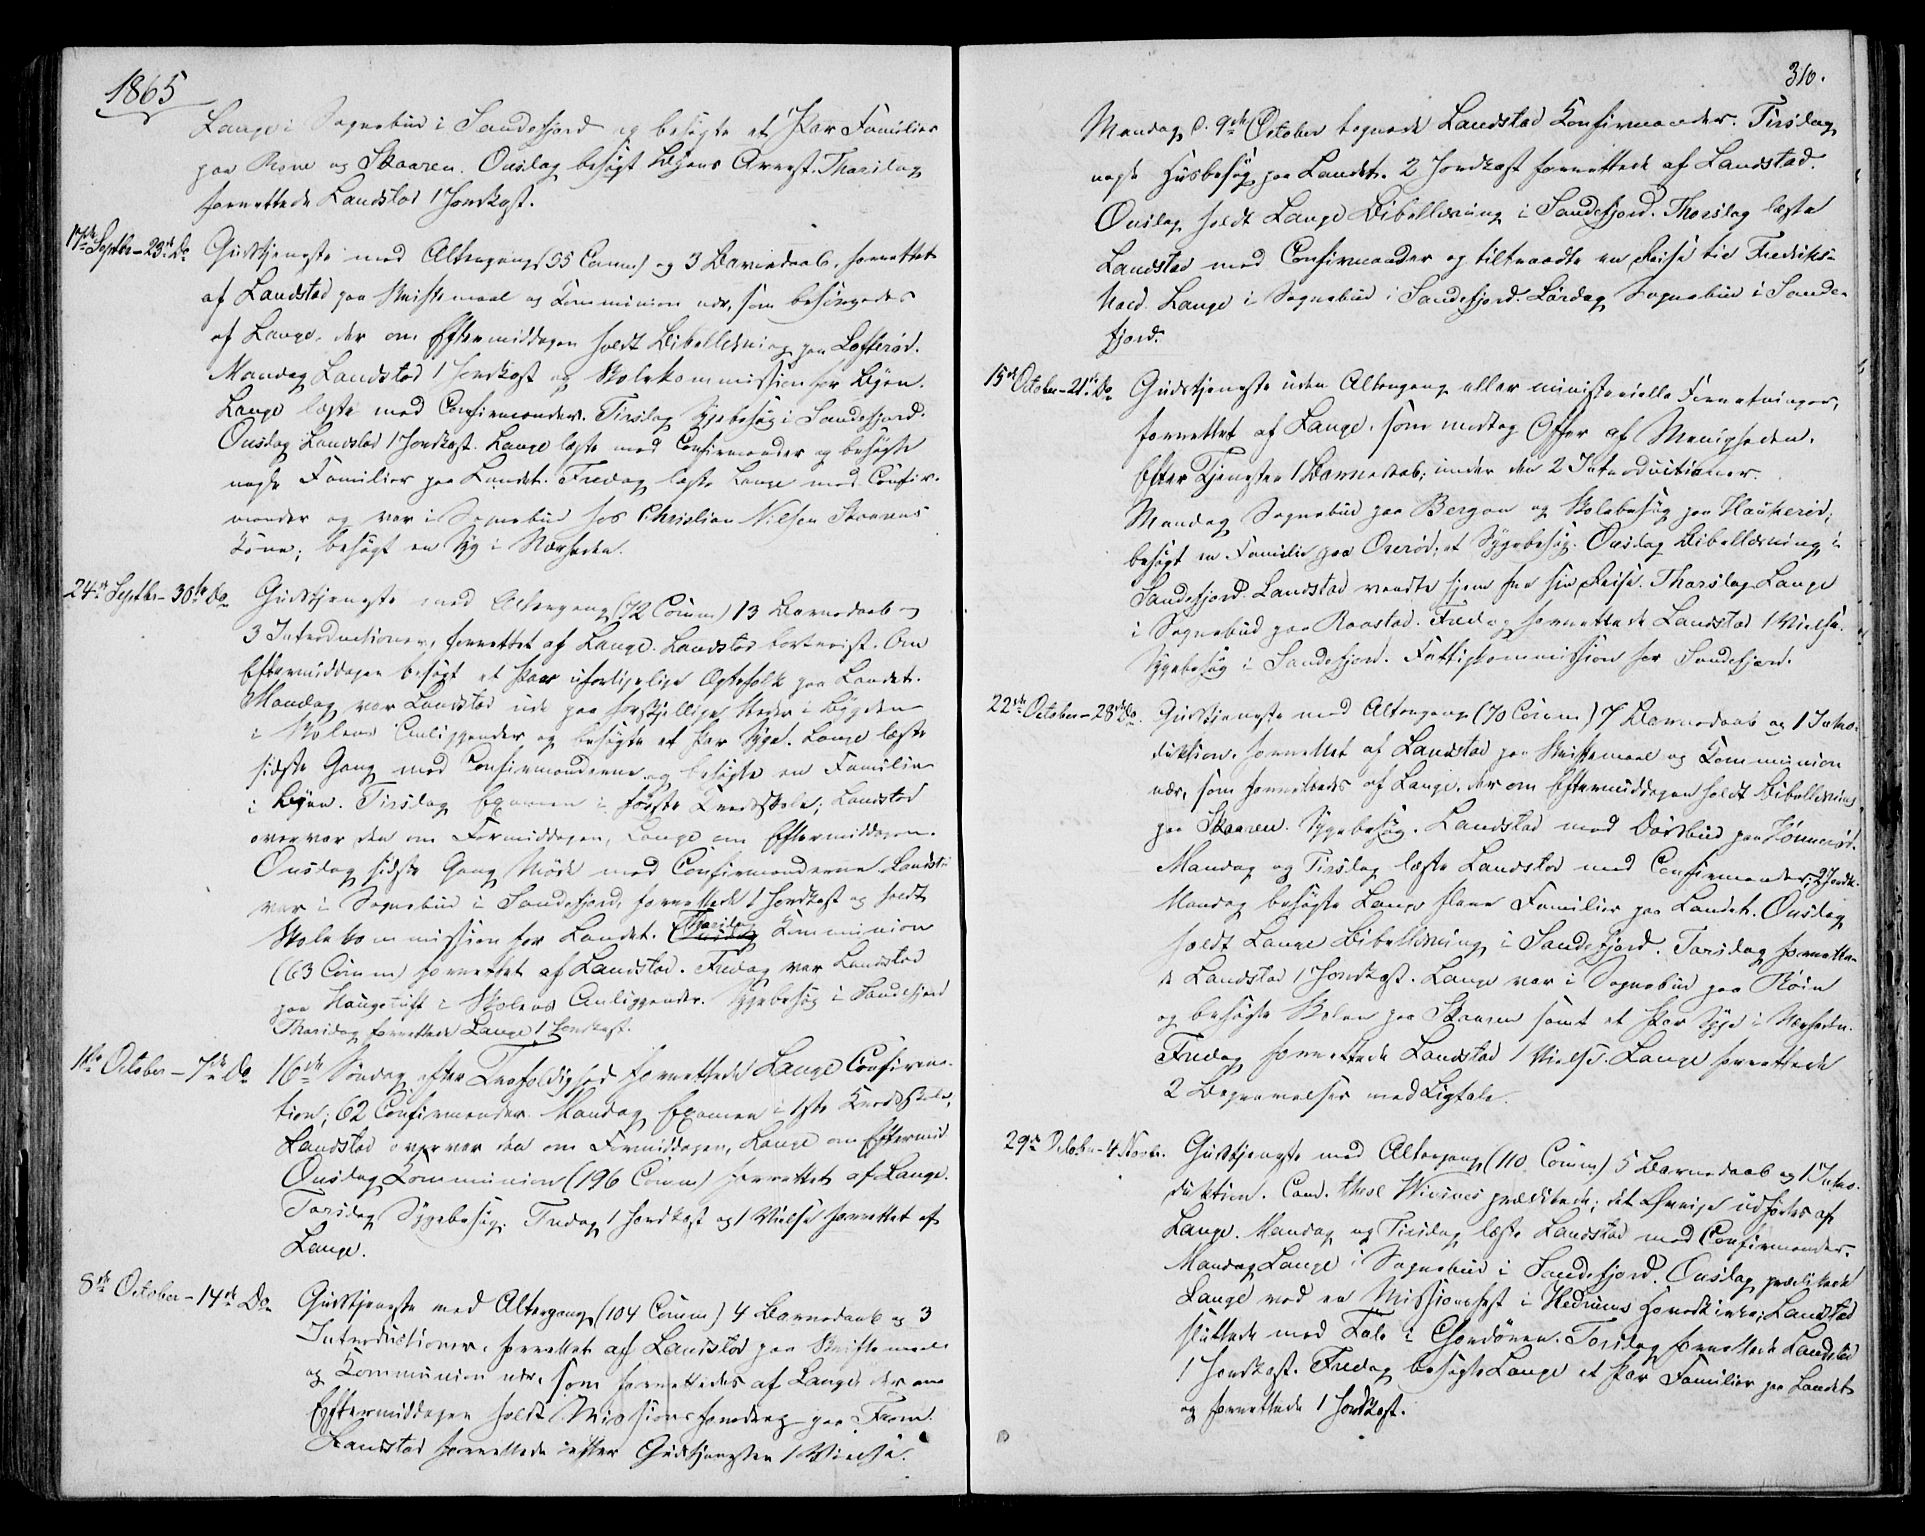 1865
Lange i Sognebud i Sandefjord og besøgte et Par Familier
paa Roue og Skaaren. Onsdag besøgt Byens Arrest. Thorsdag
forrettede Landstad 1 Jordkast.
17de Septbr – 23de Do Gudstjeneste med Altergang (55 Comm) og 3 Barnedaab, forrettet
af Landstad paa Skriftemaal og Kommunion nær, som besørgedes
af Lange, der om Eftermiddagen holdt Bibellæsning paa Lofterød.
Mandag Landstad 1 Jordkast og Skolekommission for Byen.
Lange læste med Confirmander. Tirsdag Sygebesøg i Sandefjord.
Onsdag Landstad 1 Jordkast. Lange læste med Confirmander og besøgte
nogle Familier paa Landet. Fredag læste Lange med Confir-
mander og var i Sognebud hos Christian Nilsen Skaarens
Kone; besøgt en Syg i Nærheden.
24de Septbr – 30te Do Gudstjeneste med Altergang (72 Comm) 13 Barnedaab og
3 Introductioner, forrettet af Lange. Landstad bortreist. Om
Eftermiddagen besøgt et Par uforligelige Ægtefolk paa Landet.
Mandag var Landstad ude paa forskjellige Steder i Bygden
i Skolens Anliggender og besøgte et Par Syge. Lange læste
sidste Gang med Confirmanderne og besøgte en Familie
i Byen. Tirsdag Examen i første Kredsskole; Landstad
overvar den om Formiddagen, Lange om Eftermiddagen.
Onsdag sidste Gang Møde med Confirmanderne. Landst:
var i Sognebud i Sandefjord, forrettede 1 Jordkast og holdt
Skolekommission for Landet. Thorsdag Kommunion
(63 Comm) forrettet af Landstad. Fredag var Landstad
paa Haugetuft i Skolens Anliggender. Sygebesøg i Sandefjord
Thorsdag forrettede Lange 1 Jordkast.
1ste October – 7de Do 16de Søndag efter Trefoldighed forrettede Lange Confirma-
tion; 62 Confirmander. Mandag Examen i 1ste Kredsskole;
Landstad overvar den om Formiddagen, Lange om Eftermid
Onsdag Kommunion (196 Comm) forrettet af Lange.
Torsdag Sygebesøg; Fredag 1 Jordkast og 1 Vielse forrettet af
Lange.
8de October – 14de Do Gudstjeneste med Altergang (104 Comm) 4 Barnedaab og 3
Introductioner, forrettet af Landstad paa Skriftemaal
og Kommunion nær, som forrettedes af Lange, der om
Eftermiddagen holdt Missionsforedrag paa Fram.
Landstad forrettede efter Gudstjenesten 1 Vielse.
310.
Mandag d. 9de October begyndte Landstad Konfirmander. Tirsdag
nogle Husbesøg paa Landet. 2 Jordkast forrettede af Landstad.
Onsdag holdt Lange Bibellæsning i Sandefjord. Thorsdag læste
Landstad med Confirmander og tiltraadte en Reise til Frederiks-
hald. Lange i Sognebud i Sandefjord. Lørdag Sognebud i Sande-
fjord.
15de October – 21de Do Gudstjeneste uden Altergang eller ministerielle Forretninger,
forrettet af Lange, som modtog Offer af Menigheden.
Efter Tjenesten 1 Barnedaab; under den 2 Introductioner.
Mandag Sognebud paa Bergan og Skolebesøg paa Haukerød;
besøgt en Familie paa Ormerød; et Sygebesøg. Onsdag Bibellæsning i
Sandefjord. Landstad vendte hjem fra sin Reise. Thorsdag Lange
i Sognebud paa Raastad. Fredag forrettede Landstad 1 Vielse.
Sygebesøg i Sandefjord. Fattigkommission for Sandefjord.
22de October – 28de Do Gudstjeneste med Altergang (70 Comm) 7 Barnedaab og 1 Intro-
duktion, forrettet af Landstad paa Skriftemaal og Kommunion
nær, som forrettedes af Lange, der om Eftermiddagen holdt Bibellæsning
paa Skaaren. Sygebesøg. Landstad med Dødsbud paa Hønnerød.
Mandag og Tirsdag læste Landstad med Confirmander; 2 Jordk.
Mandag besøgte Lange flere Familier paa Landet. Onsdag
holdt Lange Bibellæsning i Sandefjord. Torsdag forrette-
de Landstad 1 Jordkast. Lange var i Sognebud paa Roin
og besøgte Skolen paa Skaaren samt et Par Syge i Nærheden.
Fredag forrettede Landstad 1 Vielse. Lange forrettede
2 Begravelser med Ligtale.
29de October – 4 Novbr. Gudstjeneste med Altergang (110 Comm) 5 Barnedaab og 1 Intro-
duktion. Cand. theol prædikede; det Øvrige udførtes af
Lange. Mandag og Tirsdag læste Landstad med Confirmander.
Mandag Lange i Sognebud i Sandefjord. Onsdag prædikede
Lange ved en Missionsfest i Hedrums Hovedkirke; Landstad
sluttede med Tale i Chordøren. Torsdag forrettede Landstad
1 Jordkast. Fredag besøgte Lange et Par Familier paa Landet
og forrettede 1 Jordkast.